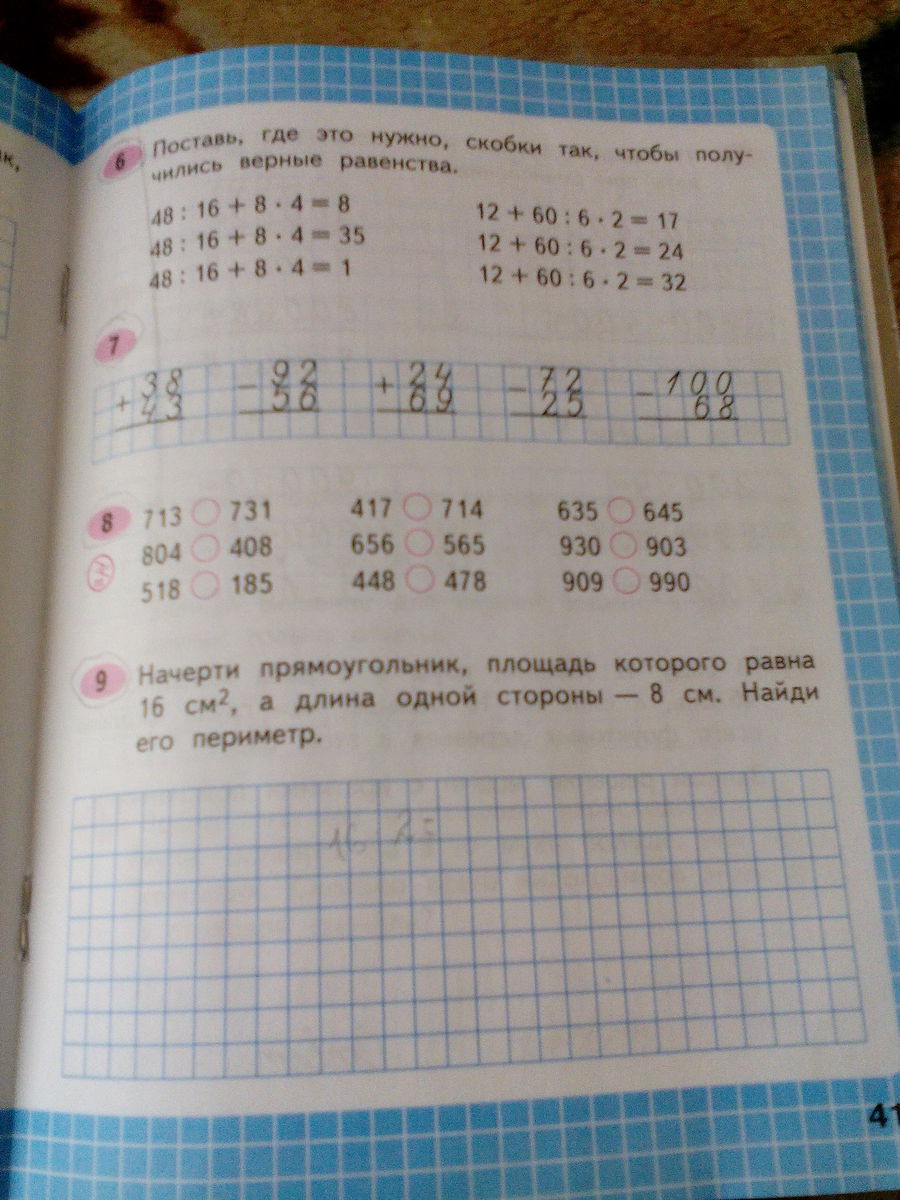 ик,
6 Поставь, где это нужно, скобки так, чтобы полу-
чились верные равенства.
48 : 16 + 8 · 4 = 8 12 + 60 : 6 · 2 = 17
48 : 16 + 8 · 4 = 35 12 + 60 : 6 · 2 = 24
48 : 16 + 8 · 4 = 1 12 + 60 : 6 · 2 = 32
7
38 92 24 72 100
+ 43 − 56 + 69 − 25 − 68
8 713 ○ 731 417 ○ 714 635 ○ 645
804 ○ 408 656 ○ 565 930 ○ 903
518 ○ 185 448 ○ 478 909 ○ 990
9 Начерти прямоугольник, площадь которого равна
16 см², а длина одной стороны — 8 см. Найди
его периметр.
16
41